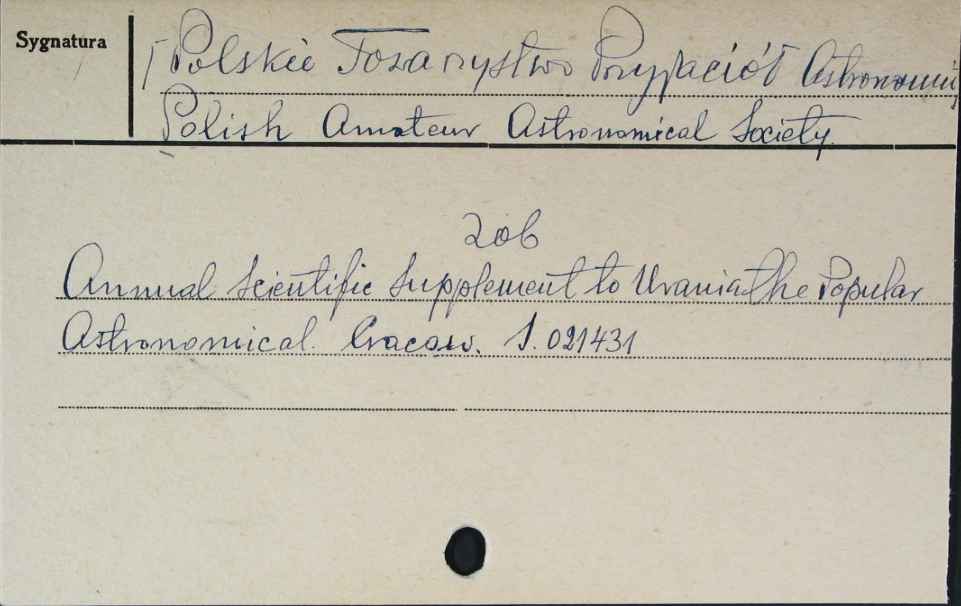 Sygnatura
Polskie Towarzystwo Przyjaciół Astronomii
Polish Amateur Astronomical Society.
zob
Annual Scientific Supplement to Urania the Popular
Astronomical. Cracow. S. 021431